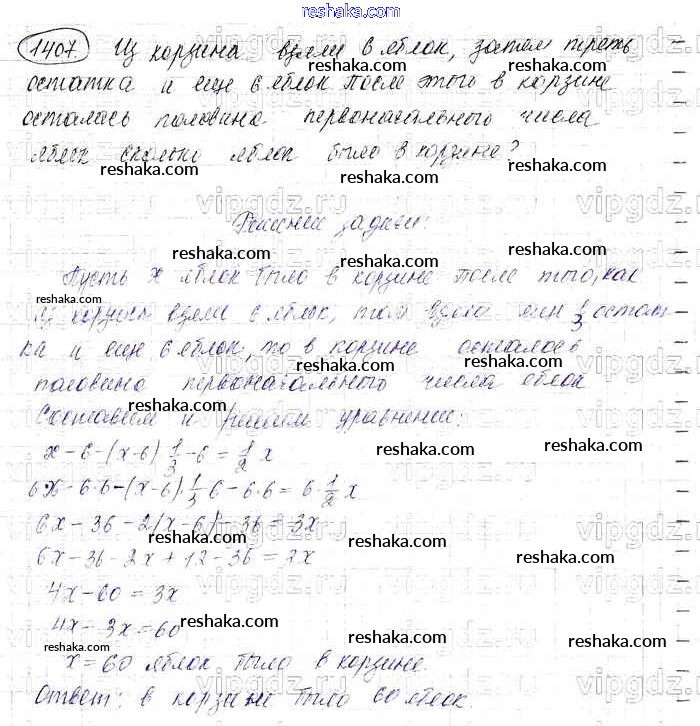 reshaka.com
1407. Из корзина взяли 6 яблок, затем треть
остатка и еще 6 яблок После этого в корзине
осталась половина первоначального числа
яблок сколько яблок было в корзине?
reshaka.com reshaka.com
Решение задачи:
reshaka.com reshaka.com
Пусть x яблок было в корзине после того, как
reshaka.com
из корзины взяли 6 яблок, 1/3 остат-
reshaka.com
ка и еще 6 яблок, то в корзине осталось
reshaka.com reshaka.com
половина первоначального числа яблок
Составим и решаем уравнение:
reshaka.com reshaka.com
x - 6 - (x-6) 1/3 - 6 = 1/2 x
reshaka.com reshaka.com
6x - 6·6 - (x-6) 1/3 6 - 6·6 = 6·1/2 x
reshaka.com reshaka.com
6x - 36 - 2(x-6) - 36 = 3x
reshaka.com reshaka.com
6x - 36 - 2x + 12 - 36 = 3x
4x - 60 = 3x
reshaka.com reshaka.com
4x - 3x = 60
reshaka.com reshaka.com
x = 60 яблок было в корзине.
reshaka.com
Ответ: в корзине было 60 яблок.
reshaka.com reshaka.com
vipgdz.ru